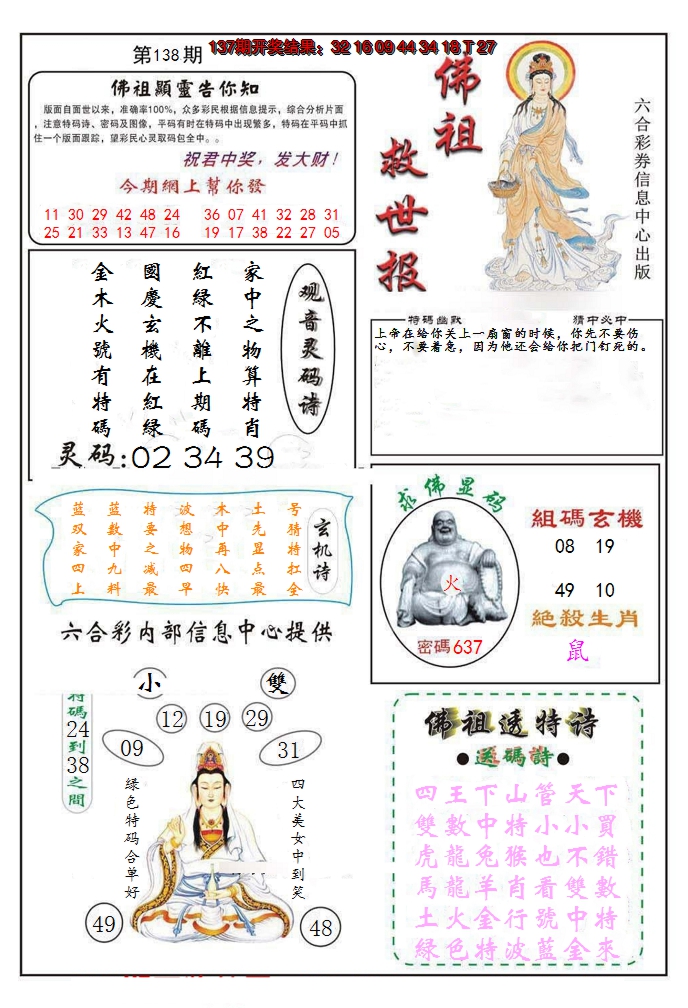 第138期
137期开奖结果：32 16 09 44 34 18 T 27
佛祖顯靈告你知
版面自面世以来，准确率100%，众多彩民根据信息提示，综合分析片面
，注意特码诗、密码及图像，平码有时在特码中出现繁多，特码在平码中抓
住一个版面跟踪，望彩民心灵取码包全中。。
祝君中奖，发大财！
今期網上幫你發
11 30 29 42 48 24 36 07 41 32 28 31
25 21 33 13 47 16 19 17 38 22 27 05
佛祖
救世报
六合彩券信息中心出版
观音灵码诗
家中之物算特肖
紅綠不離上期碼
國慶玄機在紅綠
金木火號有特碼
灵码:02 34 39
特碼幽默
猜中必中
上帝在给你关上一扇窗的时候，你先不要伤
心，不要着急，因为他还会给你把门钉死的。
玄机诗
号猜特扛全
土先显点最
木中再八快
波想物四早
特要之减最
蓝数中九料
蓝双家四上
六合彩内部信息中心提供
求佛显码
火
密碼637
組碼玄機
08 19
49 10
絕殺生肖
鼠
小
雙
特碼24到38之間
12 19 29
09 31
绿色特码合单好
四大美女中到笑
49 48
佛祖透特诗
●送碼詩●
四王下山管天下
雙數中特小小買
虎龍兔猴也不錯
馬龍羊肖看雙數
土火金行號中特
綠色特波藍金來